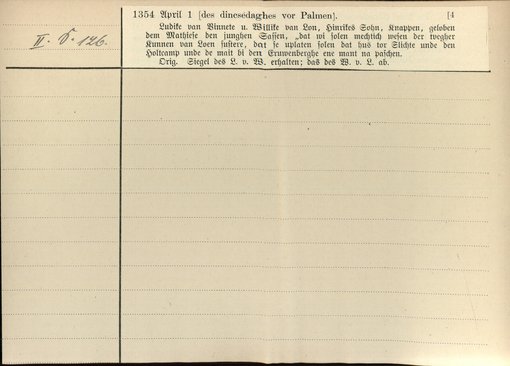 II. S. 126.
1354 April 1 [des dinesedaghes vor Palmen]. [4
Ludike van Vinnete u. Willike van Lon, Hinrikes Sohn, Knappen, geloben
dem Mathiese den junghen Sassen, „dat wi solen mechtich wesen der twegher
Kunnen van Loen sustere, dat se uplaten solen dat hus tor Slichte unde den
Holtcamp unde de mait bi dem Cruwenberghe ene mant na paschen.
Orig. Siegel des L. v. W. erhalten; das des W. v. L. ab.